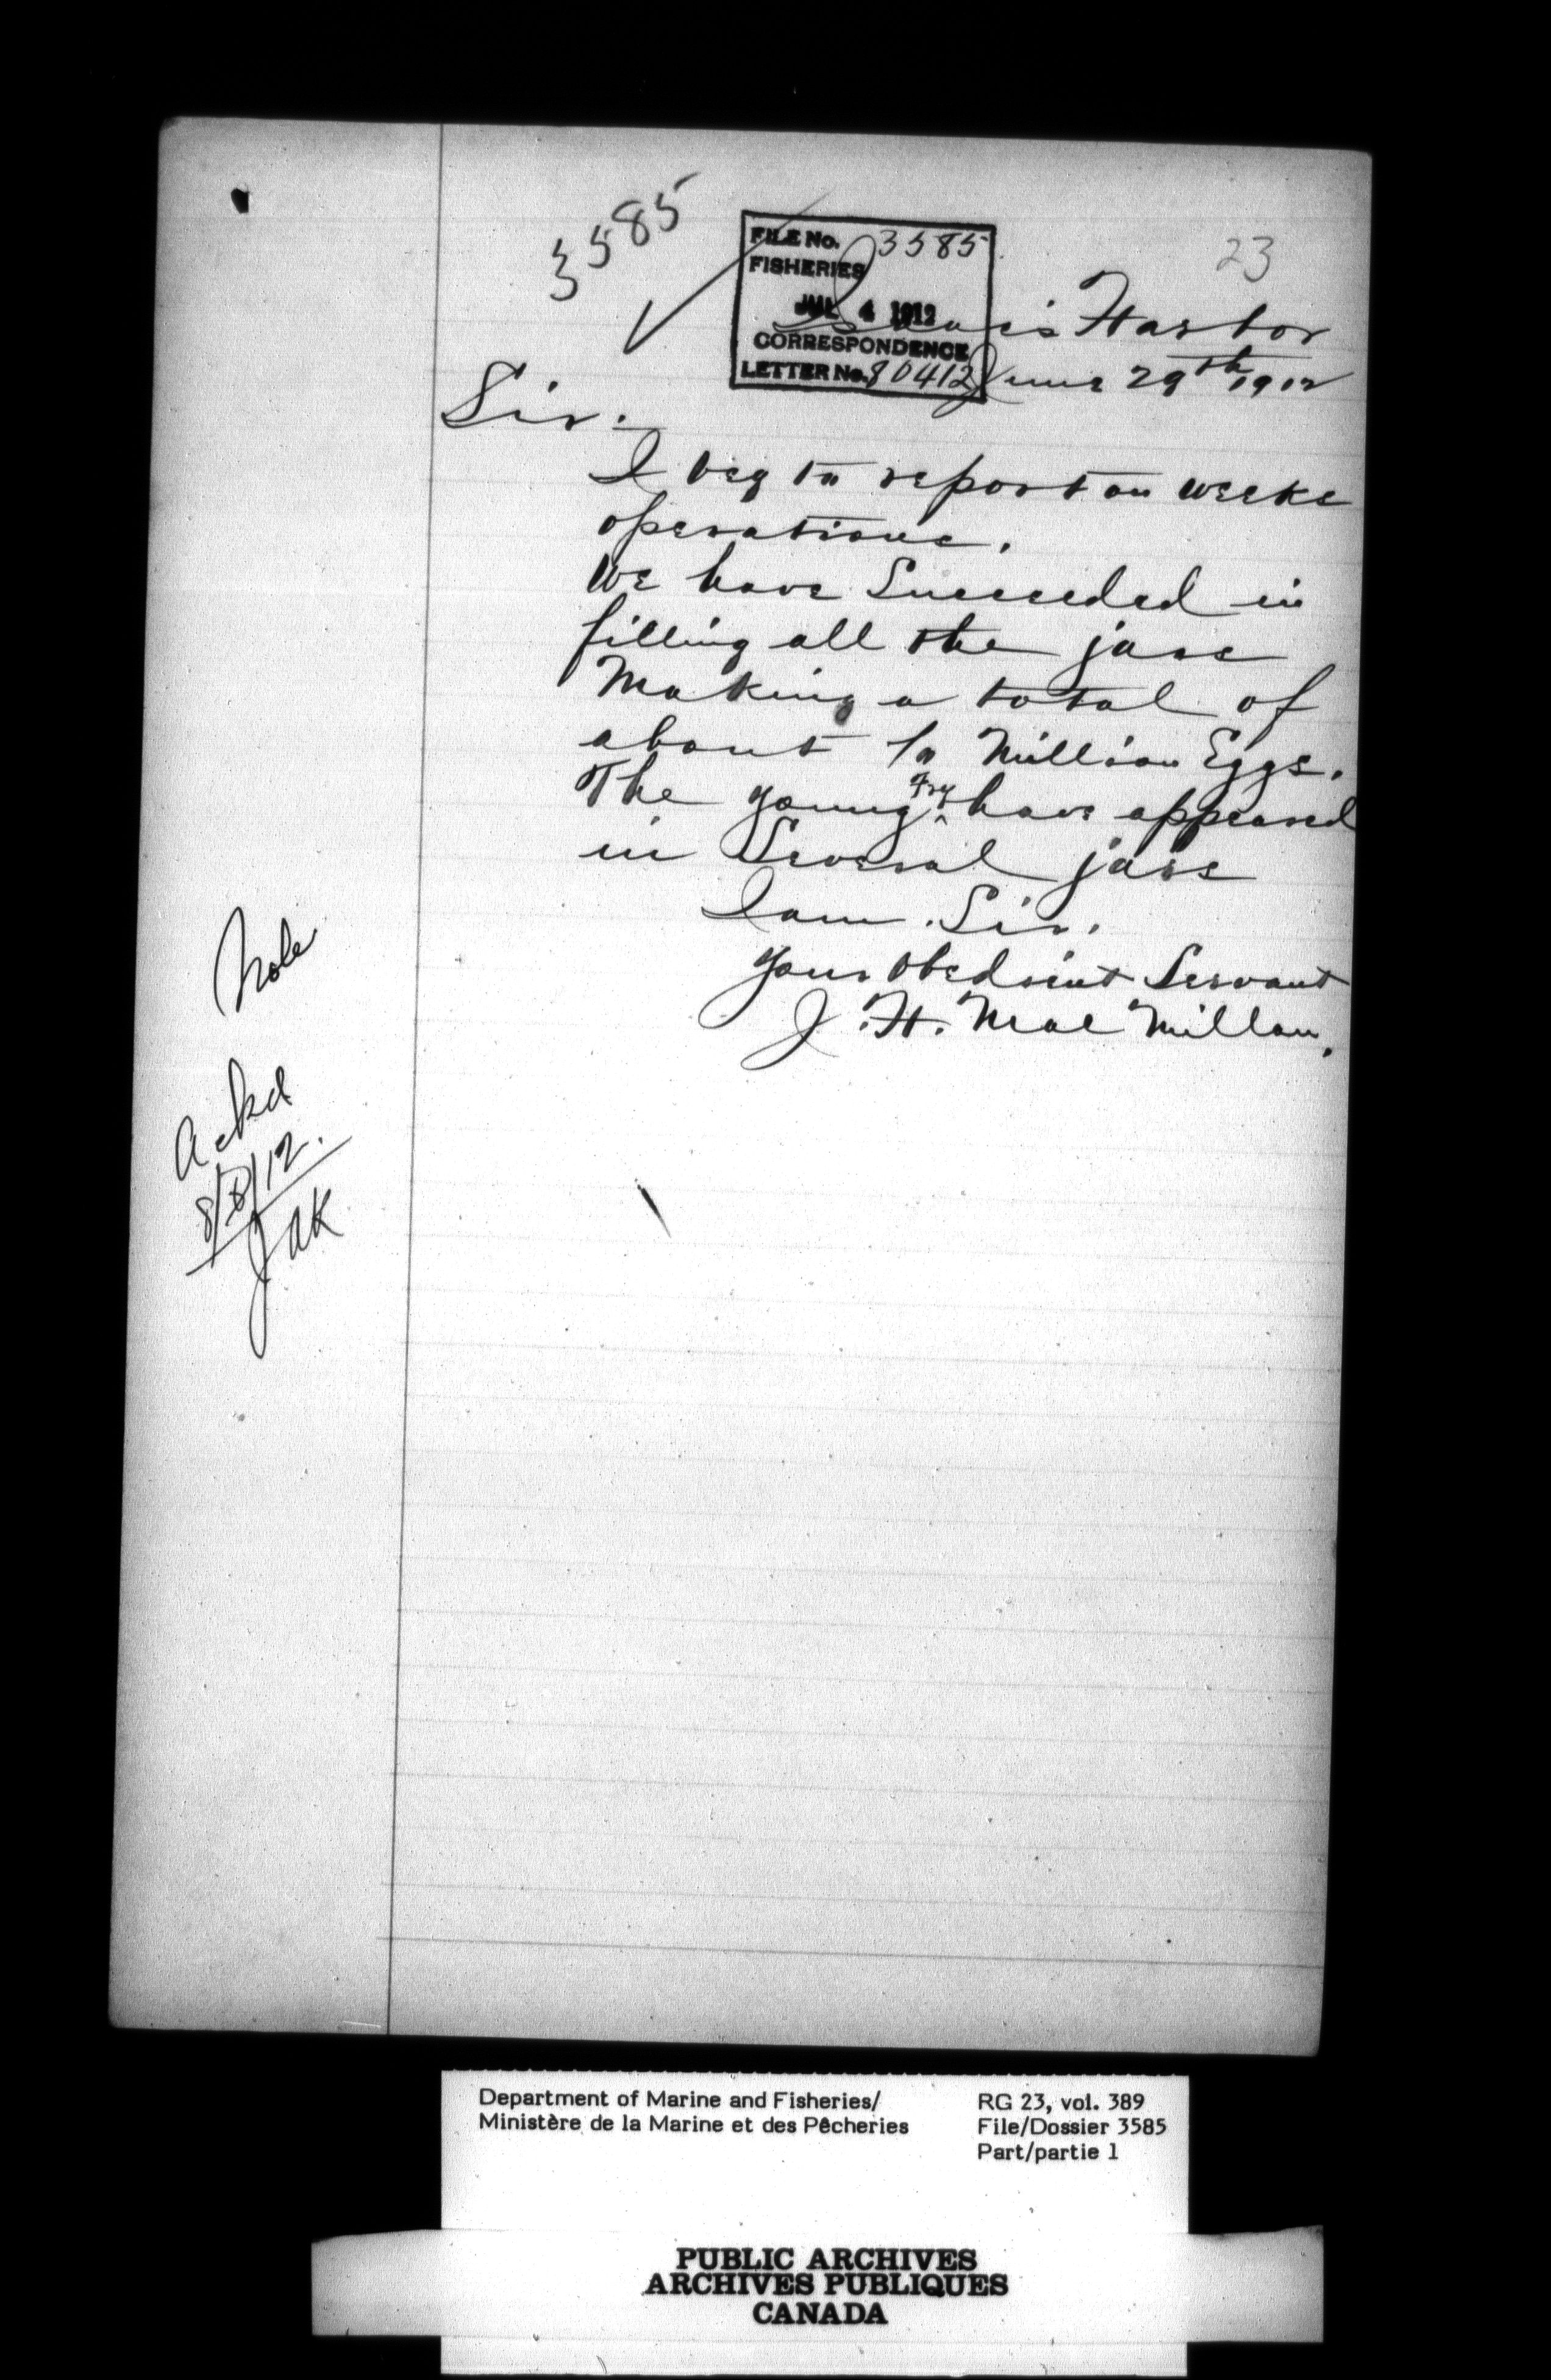 3585
23
FILE No. 3585
FISHERIES
JUL 4 1912
CORRESPONDENCE
LETTER No. 80412
Harbor
June 29th 1912
Sir.
I beg to report on weeks
operations.
We have Succeeded in
filling all the jars
Making a total of
about Million Eggs.
The young fry have appeared
in Several jars
I am. Sir.
your obedient Servant
J. H. MacMillan.
Note
Ackd
8/8/12.
JAK
Department of Marine and Fisheries/
Ministère de la Marine et des Pêcheries
RG 23, vol. 389
File/Dossier 3585
Part/partie 1
PUBLIC ARCHIVES
ARCHIVES PUBLIQUES
CANADA